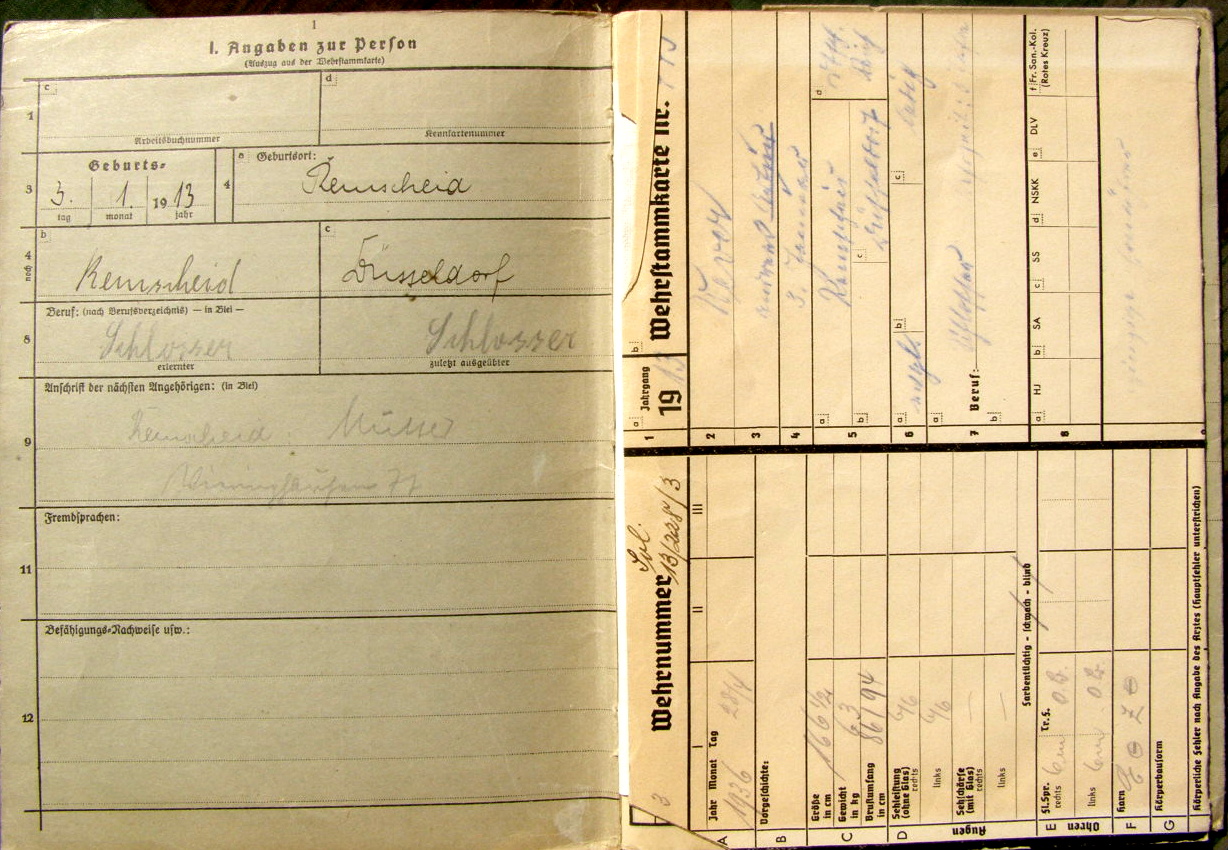 1
I. Angaben zur Person
(Auszug aus der Wehrstammkarte)
1
c
Arbeitsbuchnummer
d
Kennkartennummer
3
Geburts-
3. 1. 1913
tag monat jahr
4
a Geburtsort:
Remscheid
4 noch
b
Remscheid
c
Düsseldorf
8
Beruf: (nach Berufsverzeichnis) — in Blei —
Schlosser
erlernter
Schlosser
zuletzt ausgeübter
9
Anschrift der nächsten Angehörigen: (in Blei)
Remscheid: Mutter
11
Fremdsprachen:
12
Befähigungs-Nachweise usw.:
1
a Jahrgang
1913
b Wehrstammkarte nr.
2
3
4
3. Januar
5
a Remscheid
b
c Düsseldorf
d
6
a
b
c ledig
7
a Schlosser
Beruf:
b
8
a HJ
b SA
c SS
d NSKK
e DLV
f Fr. San.-Kol.
(Rotes Kreuz)
3
Wehrnummer
Sol.
I II III
A
Jahr Monat Tag
1936
B
Vorgeschichte:
C
Größe
in cm
166 1/2
Gewicht
in kg
63
Brustumfang
in cm
86/94
D
Augen
Sehleistung
(ohne Glas)
rechts
6/6
links
6/6
Sehschärfe
(mit Glas)
rechts
—
links
—
Farbentüchtig - schwach - blind
E
Ohren
Fl.Spr.
rechts
6 m
Tr.F.
o.B.
links
6 m
o.B.
F
Harn
E ⊖ Z ⊖
G
Körperbauform
Körperliche Fehler nach Angabe des Arztes (Hauptfehler unterstrichen)